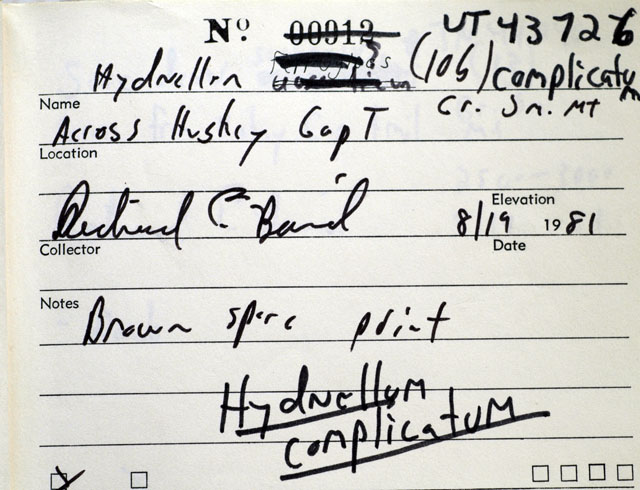 Nº 00912 UT43726
Hydnellum (106) complicatum
Name Gr. Sm. MT
Across Huskey Gap T
Location
Richard E Baird 8/19 1981
Elevation
Collector Date
Notes Brown spore print
Hydnellum
complicatum